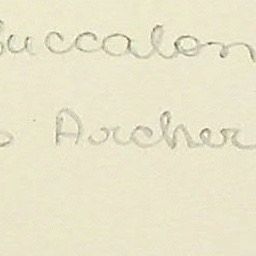 Buccalon
Archer